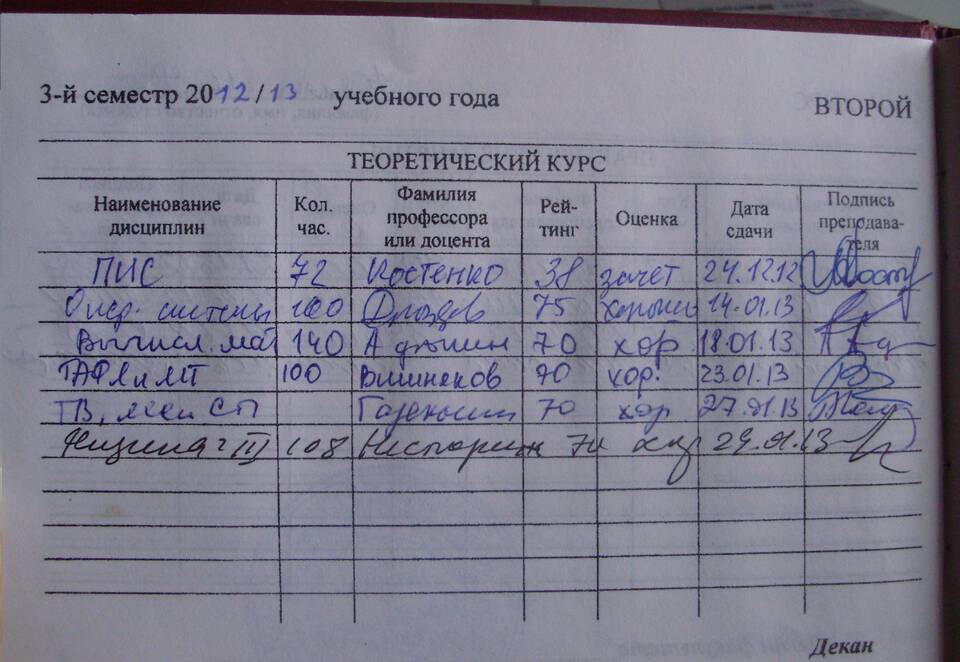 3-й семестр 2012/13 учебного года
ВТОРОЙ
ТЕОРЕТИЧЕСКИЙ КУРС
Наименование дисциплин Кол. час. Фамилия профессора или доцента Рей-тинг Оценка Дата сдачи Подпись преподава-теля
ПИС 72 Костенко 38 зачет 24.12.12
Опер. системы 100 Дроздов 75 хорошо 14.01.13
Вычисл. мат 140 70 хор. 18.01.13
ТАФЯиМТ 100 Вишняков 70 хор. 23.01.13
ТВ, 70 хор 27.01.13
Физика ч III 108 70 хор 29.01.13
Декан